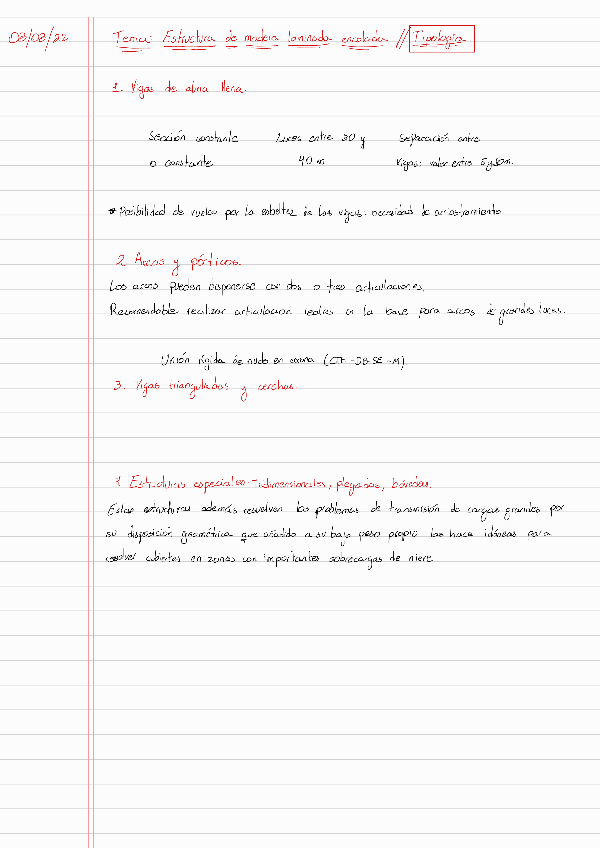 08/08/22
Tema: Estructura de madera laminada encolada // Tipología
1. Vigas de alma llena.
Sección constante Luces entre 30 y Separación entre
o constante 40 m Vigas: valor entre 5 y 10m.
* Posibilidad de vuelco por la esbeltez de las vigas: necesidad de arriostramiento
2 Arcos y pórticos.
Los arcos pueden disponerse con dos o tres articulaciones.
Recomendable realizar articulacion en la base para arcos de grandes luces.
Unión rígida de nudo en (CTE-DB-SE-M)
3. Vigas trianguladas y cerchas.
4 Estructuras especiales - tridimensionales, plegadas, bóvedas.
Estas estructuras además resuelven los problemas de transmisión de cargas grandes por
su disposición geométrica que añadido a su bajo peso propio las hace idóneas para
resolver cubiertas en zonas con importantes sobrecargas de nieve.